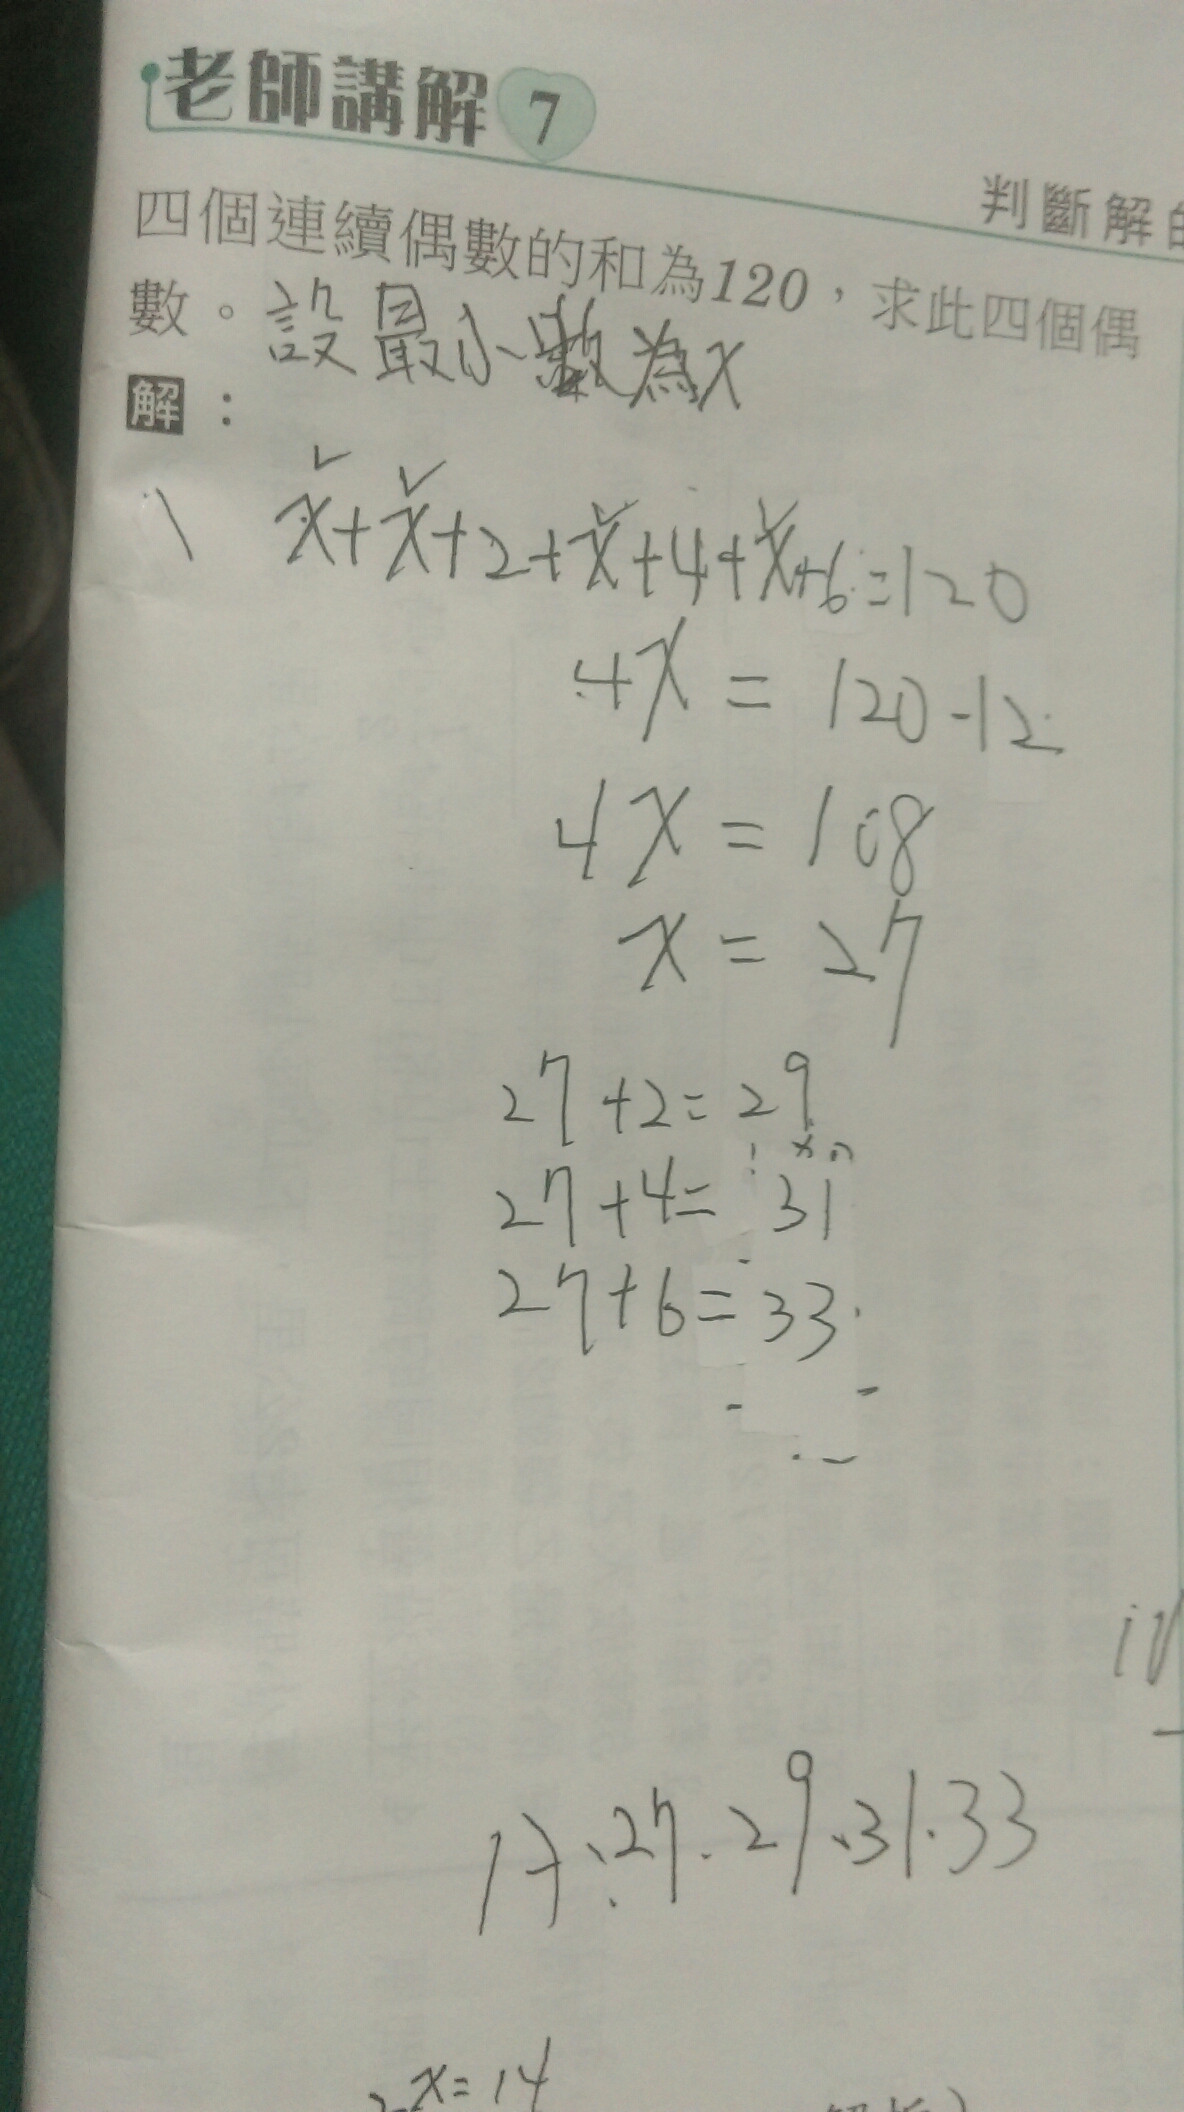 老師講解 7
判斷解的
四個連續偶數的和為120，求此四個偶
數。設最小數為x
解：
x+x+2+x+4+x+6=120
4x = 120-12
4x = 108
x = 27
27+2=29
27+4= 31
27+6=33
、27、29、31、33
x=14